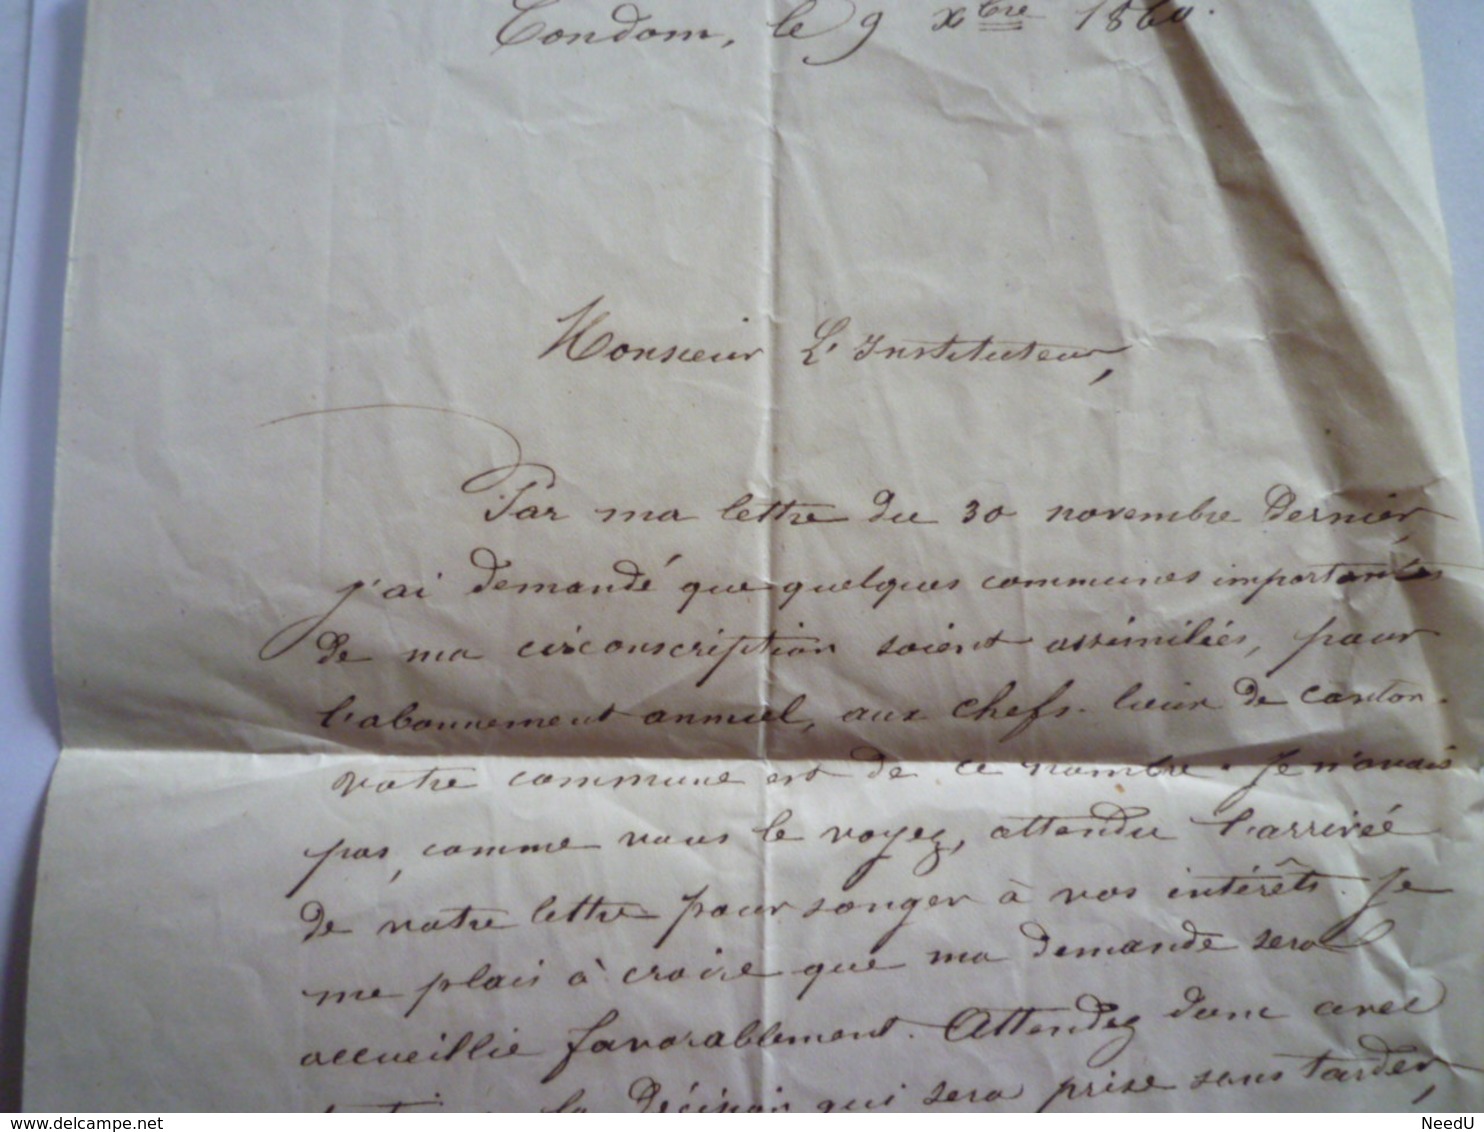 Condom, le 9 Xbre 1860.
Monsieur L'Instituteur,
Par ma lettre du 30 novembre dernier
j'ai demandé que quelques communes importantes
de ma circonscription soient assimilées, pour
l'abonnement annuel, aux chefs-lieux de canton.
votre commune est de ce nombre. Je n'avais
pas, comme vous le voyez, attendu l'arrivée
de votre lettre pour songer à vos intérêts. Je
me plais à croire que ma demande sera
accueillie favorablement. Attendez donc avec
la décision qui sera prise sans tarder,
delcampe.net
NeedU